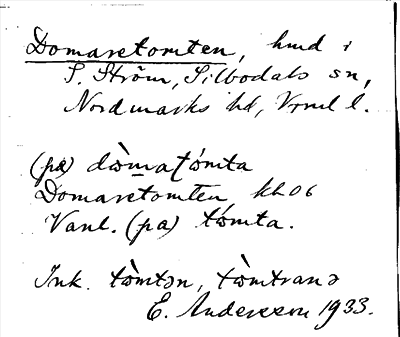 Domaretomten, hmd i
S. Ström, Silbodals sn,
Nordmarks hd, Vrml l.
(på) dɷ̀maʈɷ́mta
Domaretomten, kh06
Vanl. (på) tɷ́mta.
Ink. tɷ̀mtən, tɷ̀mtranə
E. Andersson 1933.